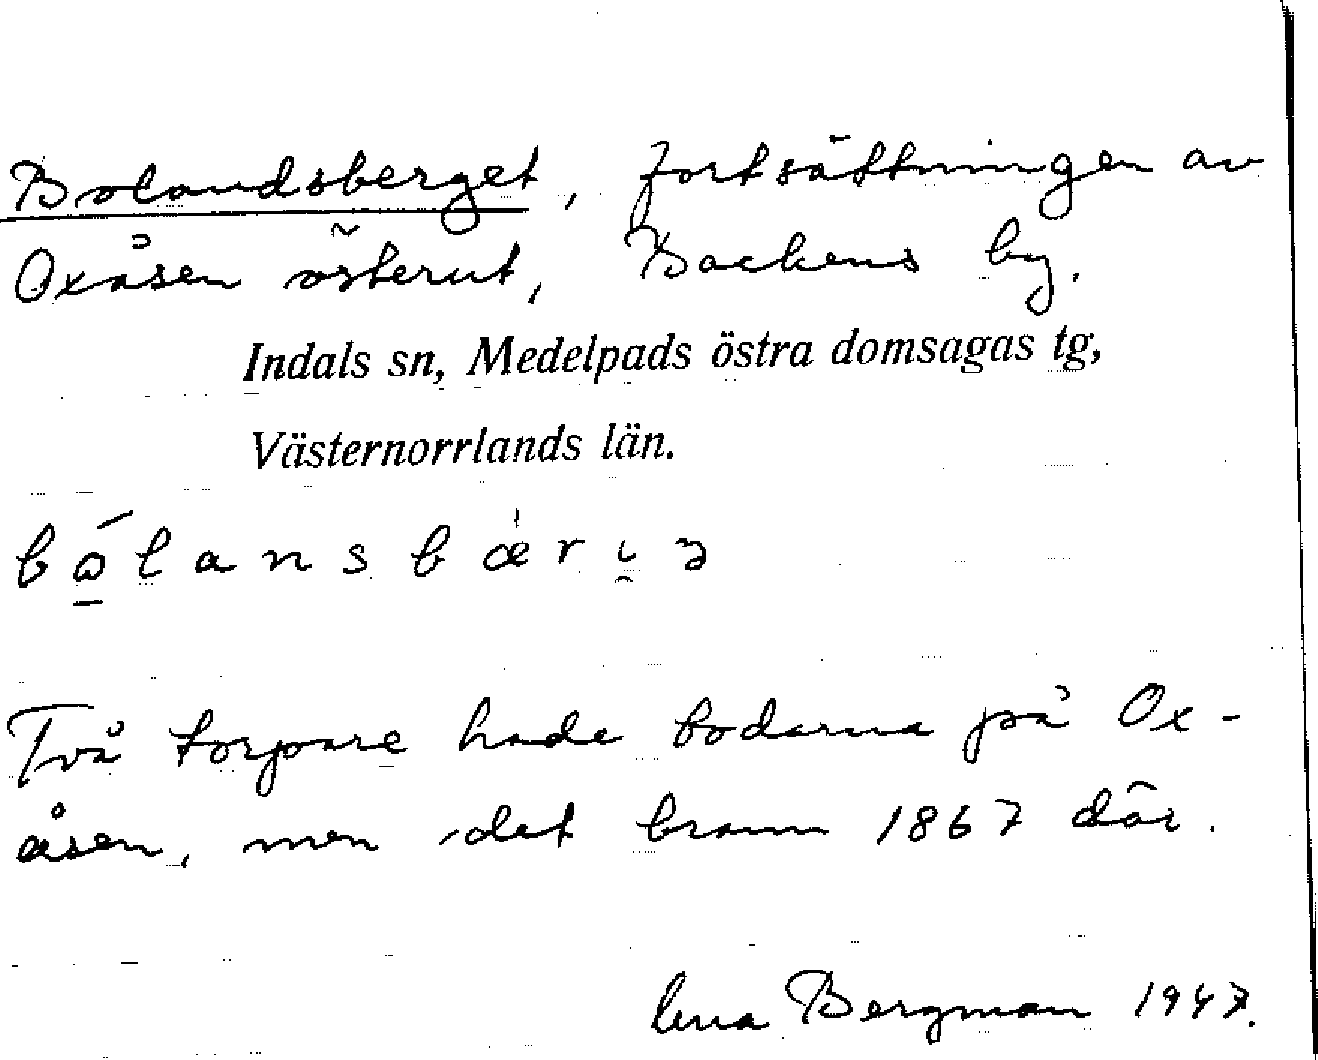 Bolandsberget, fortsättningen av
Oxåsen österut, Backens by.
Indals sn, Medelpads östra domsagas tg,
Västernorrlands län.
bo̲̒lansbærı̰ȝ
Två torpare hade bodarna på Ox-
åsen, men det brann 1867 där.
Bergman 1947.